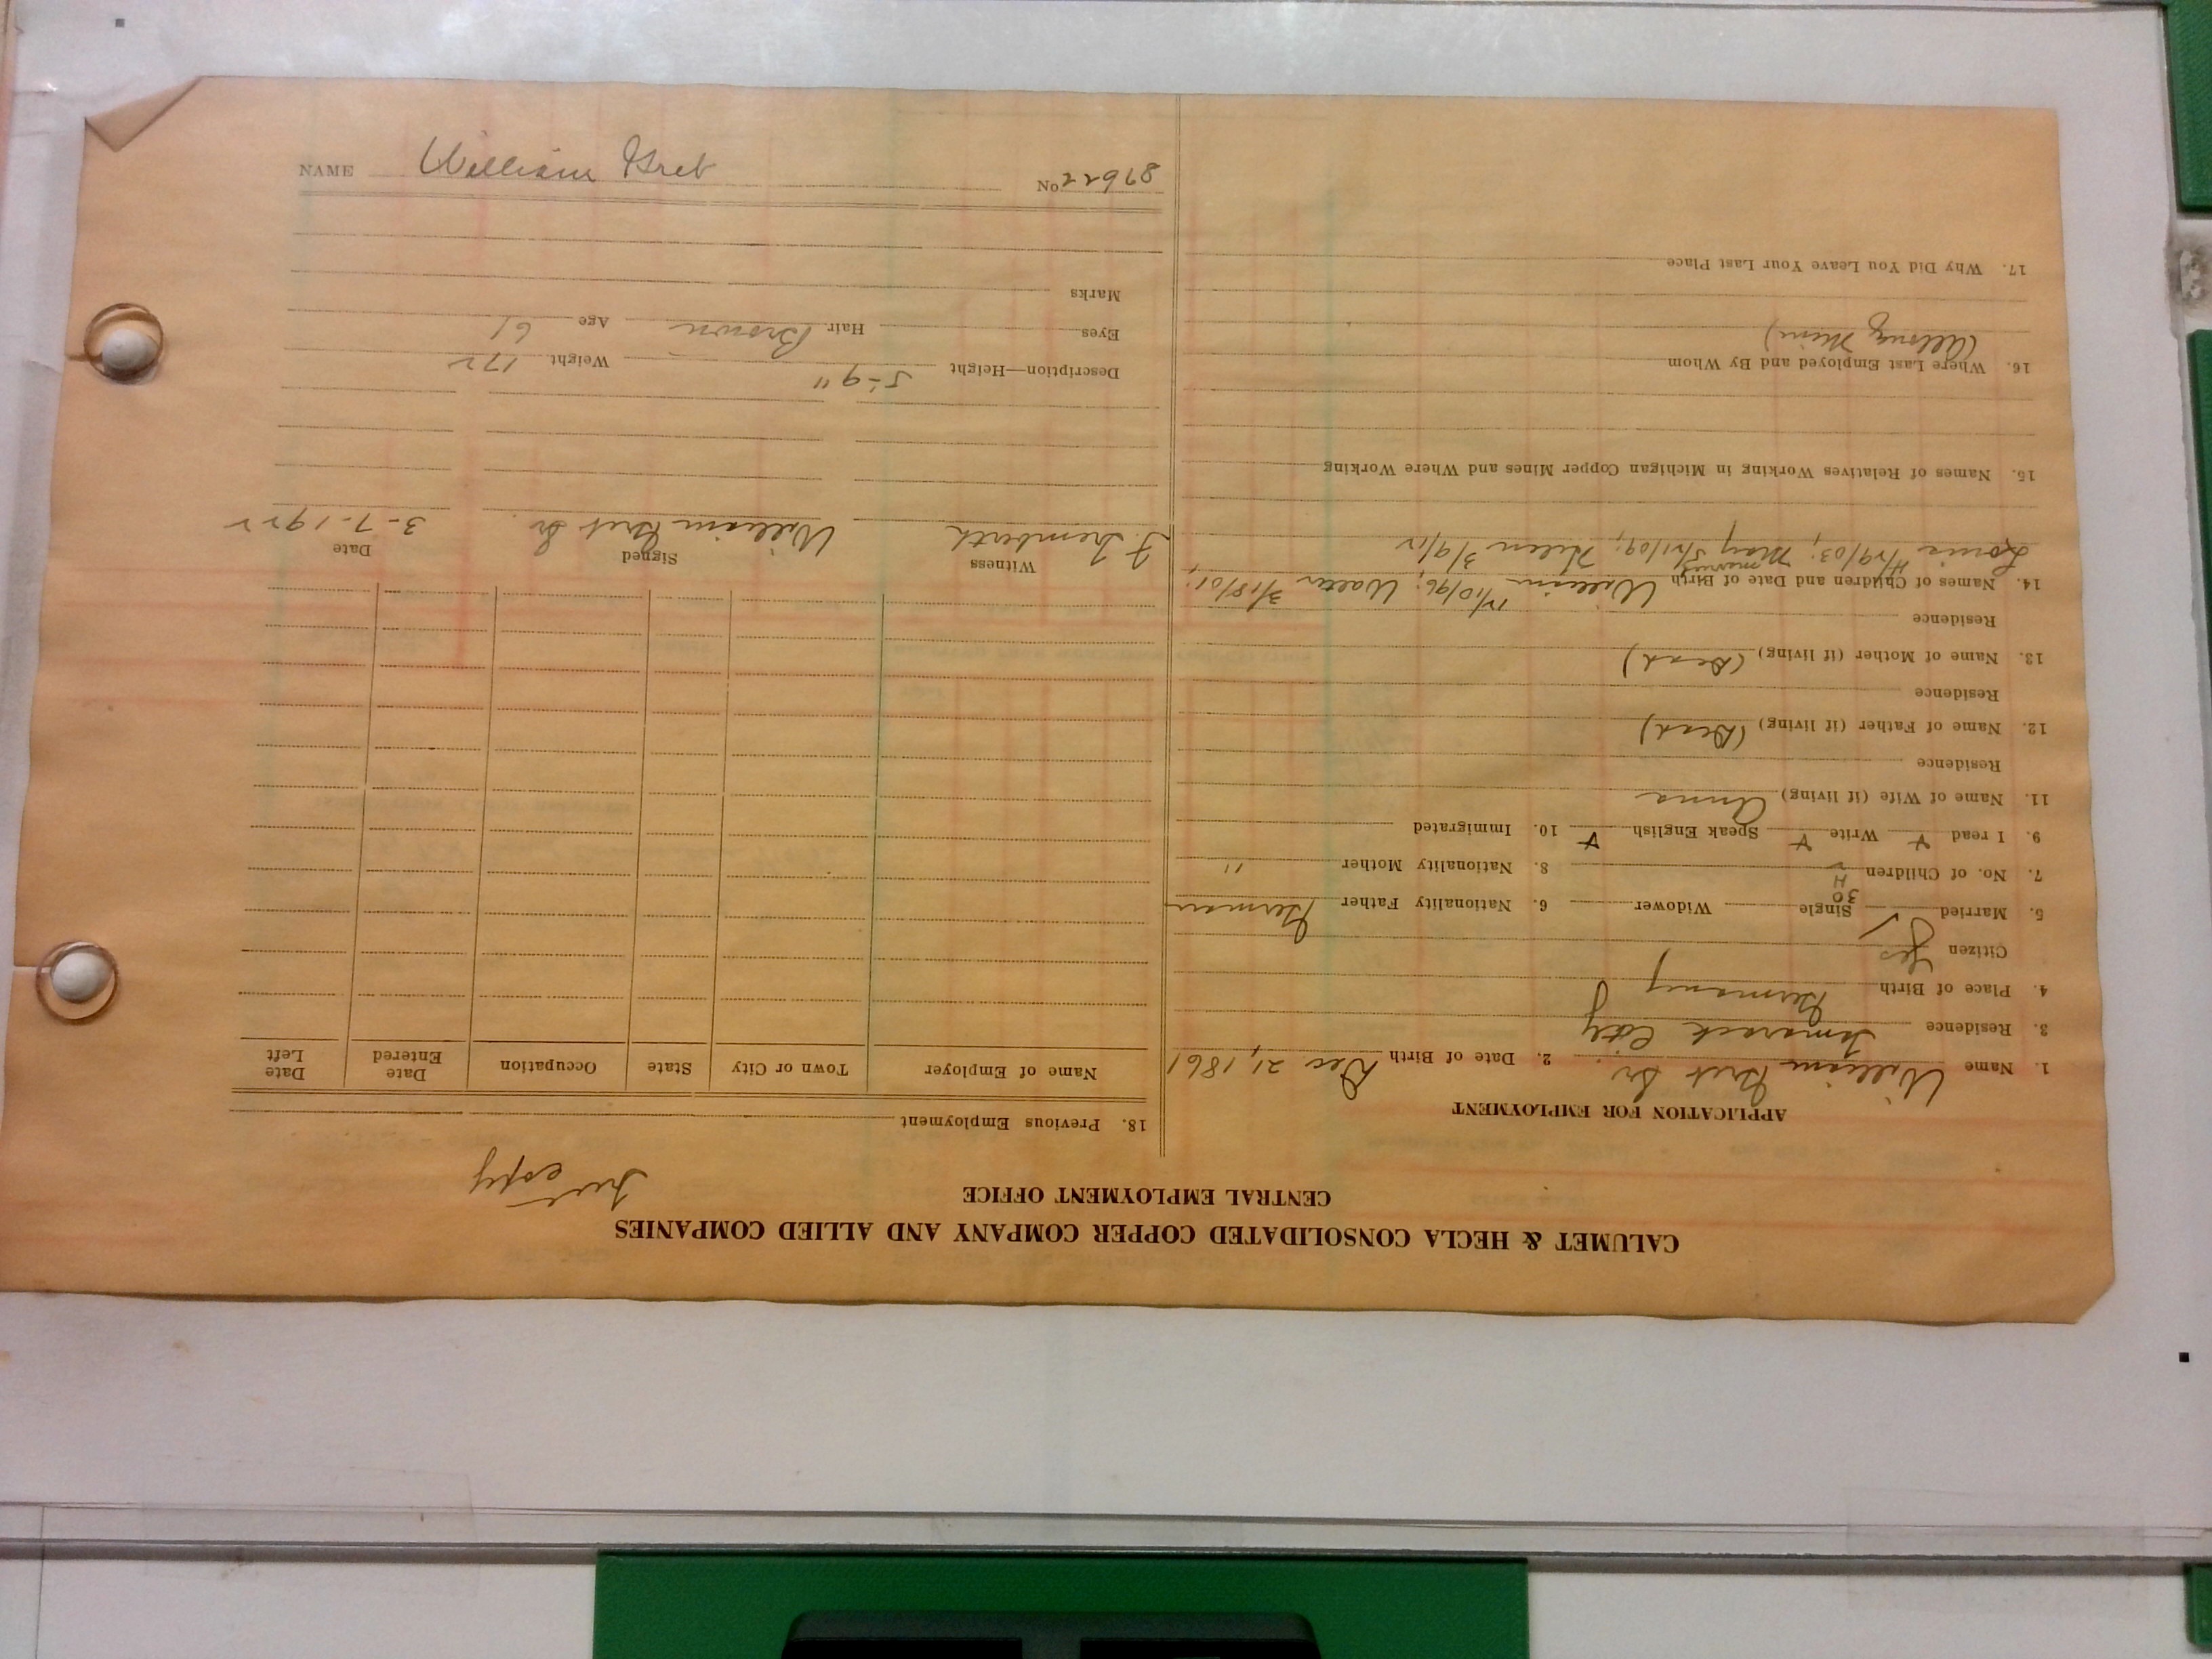 CALUMET & HECLA CONSOLIDATED COPPER COMPANY AND ALLIED COMPANIES
CENTRAL EMPLOYMENT OFFICE
copy
APPLICATION FOR EMPLOYMENT
1. Name William Gret Sr. 2. Date of Birth Dec 21, 1861
3. Residence Tamarack City
4. Place of Birth Germany
Citizen Yes
5. Married 30 Single Widower 6. Nationality Father German
7. No. of Children 8. Nationality Mother "
9. I read Write Speak English 10. Immigrated
11. Name of Wife (if living) Anna
Residence
12. Name of Father (if living) (Dead)
Residence
13. Name of Mother (if living) (Dead)
Residence
14. Names of Children and Date of Birth William 12/10/96; Walter 3/18/01;
married
4/19/03; May 5/21/09; Helen 3/9/12
15. Names of Relatives Working in Michigan Copper Mines and Where Working
16. Where Last Employed and By Whom
(Allouez Mine)
17. Why Did You Leave Your Last Place
18. Previous Employment
Name of Employer Town or City State Occupation Date Entered Date Left
Witness Signed Date
William Gret Sr. 3-7-1922
Description—Height 5-9" Weight 172
Eyes Hair Brown Age 61
Marks
No 87622
NAME William Gret